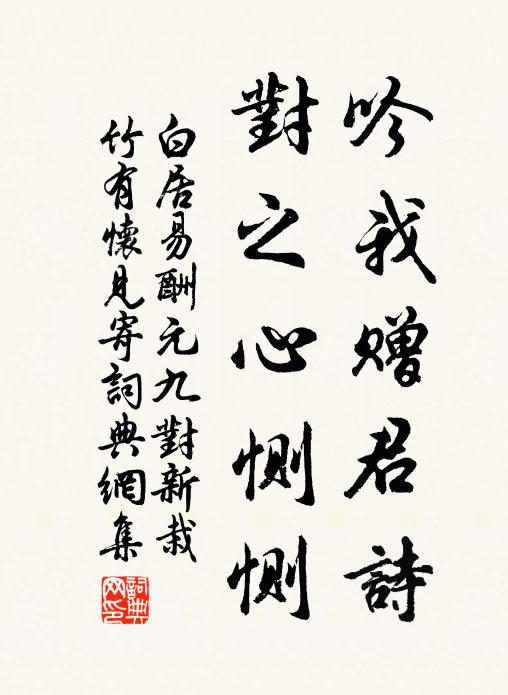 吟我贈君詩
對之心惻惻
白居易酬元九對新栽
竹有懷見寄詞典網集
詞典
网印